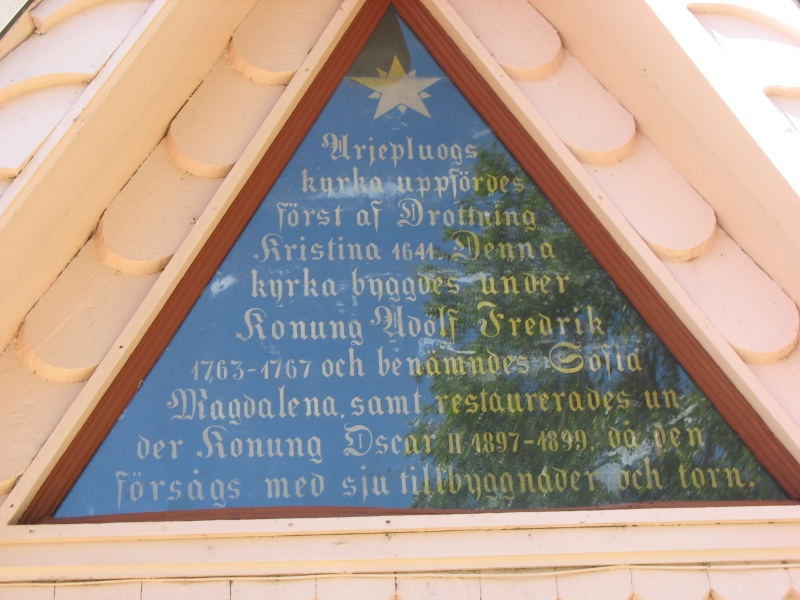 Arjepluogs
kyrka uppfördes
först af Drottning
Kristina 1641. Denna
kyrka byggdes under
Konung Adolf Fredrik
1763-1767 och benämndes Sofia
Magdalena, samt restaurerades un-
der Konung Oscar II 1897-1899, då den
försågs med sju tillbyggnader och torn.